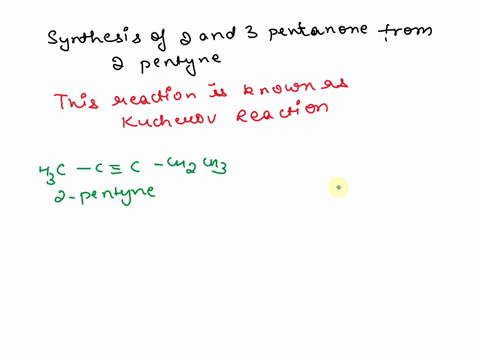 Synthesis of 2 and 3 pentanone from
2 pentyne
This reaction is known as
Kucherov Reaction
H3C - C ≡ C - CH2CH3
2-pentyne